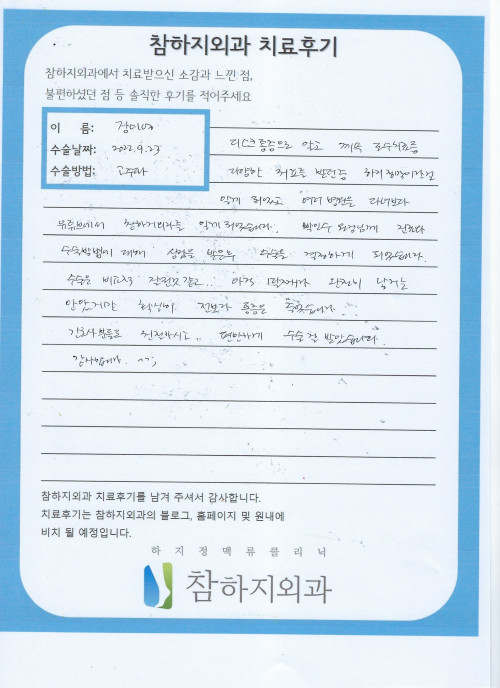 참하지외과 치료후기
참하지외과에서 치료받으신 소감과 느낀 점,
불편하셨던 점 등 솔직한 후기를 적어주세요
이 름:
수술날짜: 2022.9.23
수술방법: 고주파
디스크 통증으로 알고 계속
다양한 치료를 받던중 하지정맥이라는걸
알게 되었고 여러 병원을 다녀보다
유튜브에서 참하지외과를 알게 되었습니다. 박인수 원장님께 진료와
수술방법에 대해 설명을 받은후 수술을 결정하게 되었습니다.
수술은 비교적 잘된것 같고.. 아직 1주차가 완전히 낫지는
안았지만 확실히 전보다 통증은 줄었습니다.
간호사분들도 친절하시고.. 편안하게 수술 잘 받았습니다.
감사합니다. ^^;
참하지외과 치료후기를 남겨 주셔서 감사합니다.
치료후기는 참하지외과의 블로그, 홈페이지 및 원내에
비치 될 예정입니다.
하지정맥류클리닉
참하지외과